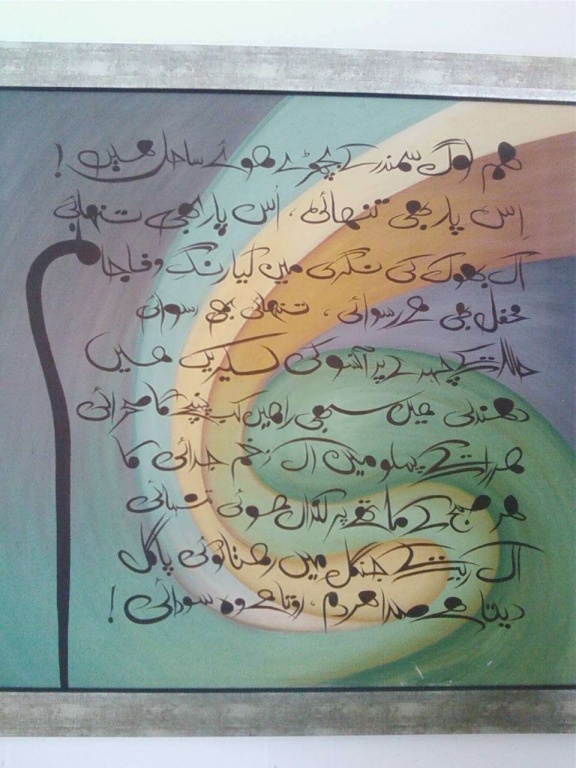 ہم لوگ سمندر کے بچھڑے ہوئے ساحل ہیں !
اِس پار بھی تنہائی ، اُس پار بھی تنہائی
اک بھوک کی نگری میں کیا رنگ وفا
محفل بھی ہے رسوائی ، تنہائی بھی رسوائی
حالات کے چہرے پر آنسو کی لکیریں ہیں
دھندلی ہیں سبھی راہیں کب
ہر رات کے پہلو میں اک زخم جدائی کا
ہر صبح کے ماتھے پر ہوئی
اک ریت کے جنگل میں رہتا کوئی پاگل
دیتا ہے صدا ہر دم ، روتا ہے وہ سودائی !